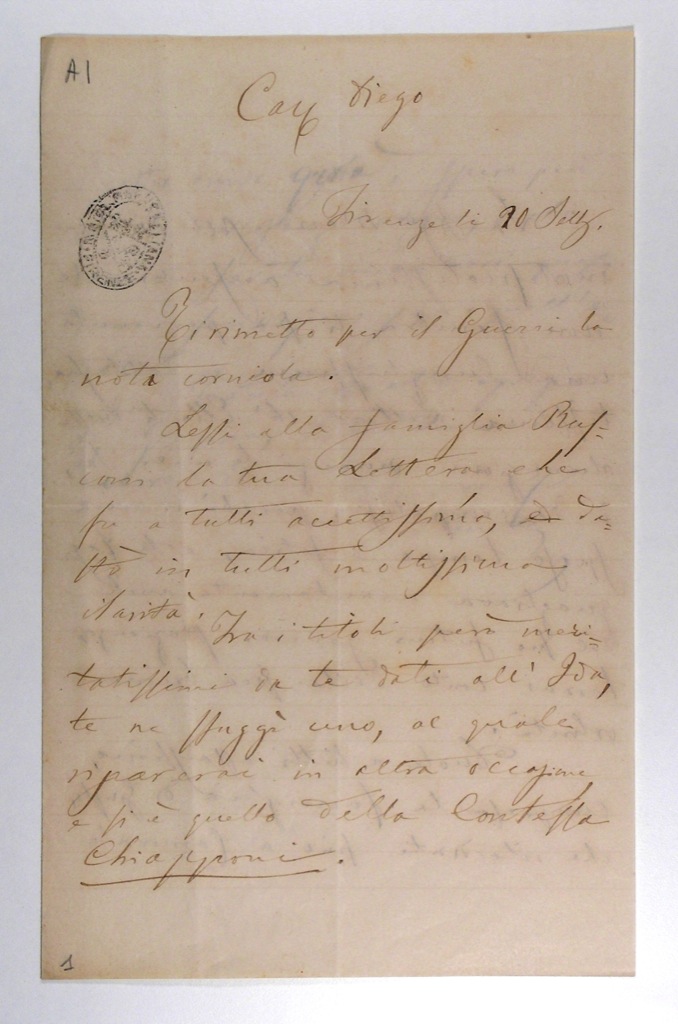 A1
Caro Diego
Firenze li 20 Settb.
Ti rimetto per il Guerri la
nota corniola.
Lessi alla famiglia Rus-
coni la tua Lettera che
fu a tutti accettissima, e de=
stò in tutti moltissima
ilarità. Tra i titoli però meri=
tatissimi da te dati all' Ida,
te ne sfuggì uno, al quale
riparerai in altra occasione
e si è quello della Contessa
Chiapponi.
1